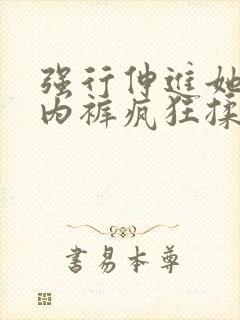 强行伸进她
内裤疯狂揉
书易本尊